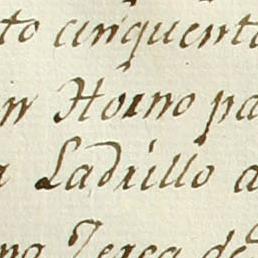 to cinquenta
un Horno pa
Ladrillo a
na Terca de